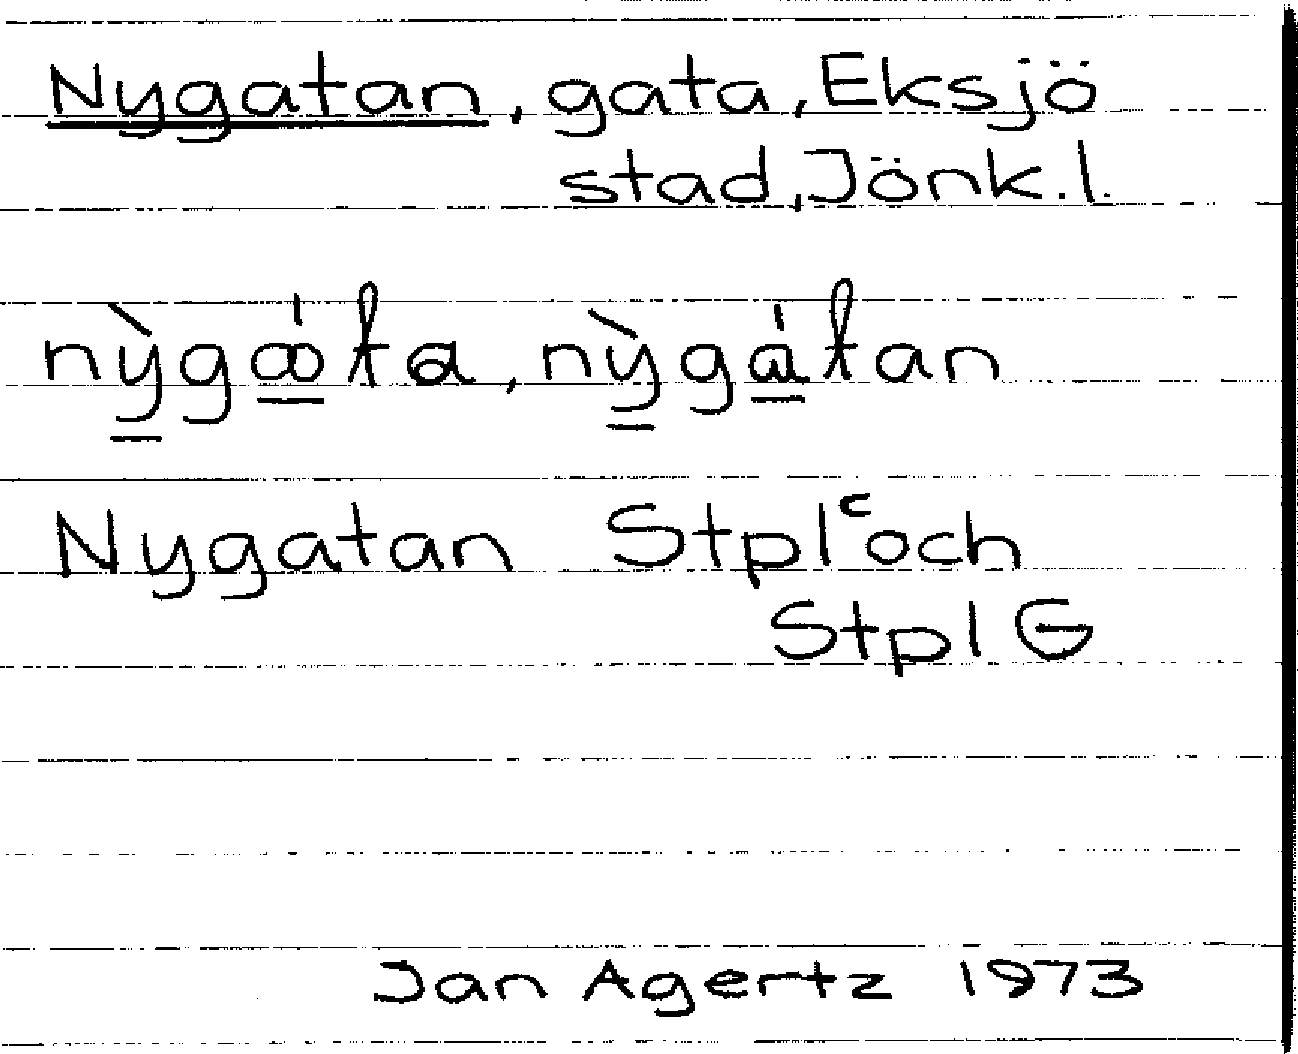 Nygatan, gata, Eksjö
stad, Jönk.l.
Nygatan Stplᶜ och
Stpl G
Jan Agertz 1973